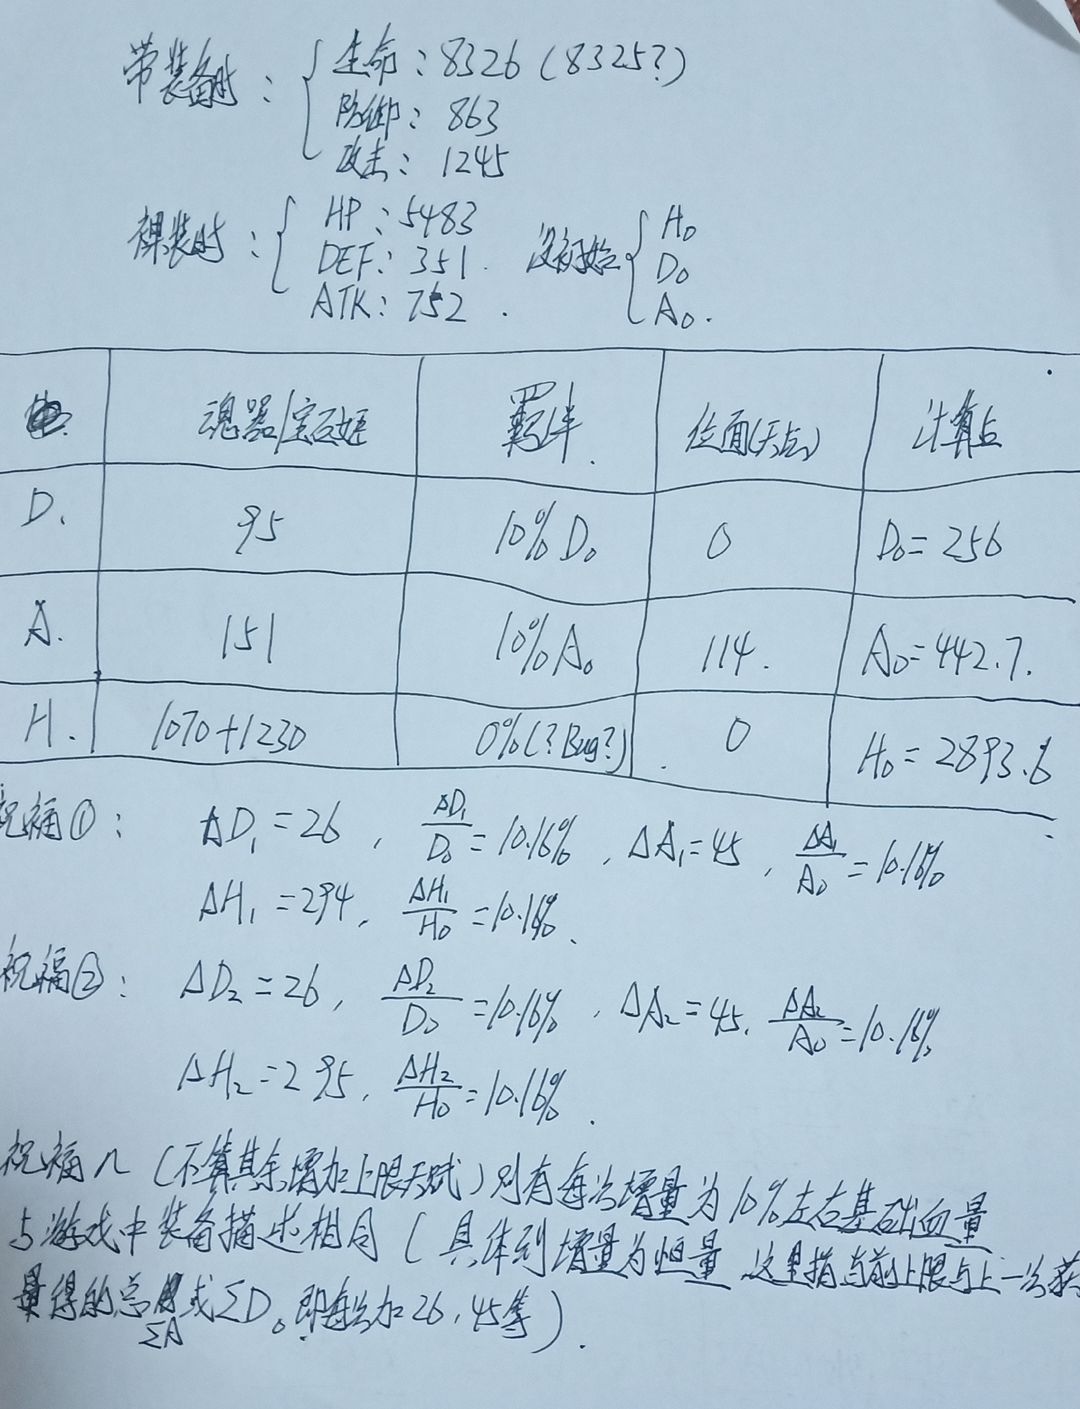 带装备时：
生命：8326（8325?）
防御：863
攻击：1245
裸装时：
HP：5483
DEF：351.
ATK：752.
设初始
H₀
D₀
A₀.
魂器/宝石姬 羁绊. 位面(天点) 计算点
D. 95 10% D₀ 0 D₀=256
A. 151 10% A₀ 114. A₀=442.7.
H. 1070+1230 0%(?Bug?) 0 H₀=2893.6
祝福①： ΔD₁=26, ΔD₁/D₀=10.16%, ΔA₁=45, ΔA₁/A₀=10.16%
ΔH₁=294, ΔH₁/H₀=10.16%.
祝福②： ΔD₂=26, ΔD₂/D₀=10.16%, ΔA₂=45, ΔA₂/A₀=10.16%
ΔH₂=295, ΔH₂/H₀=10.16%.
祝福n（不算其余增加上限天赋）则有每次增量为10%左右基础血量
与游戏中装备描述相同（具体到增量为恒量 这里指当前上限与上一次获
得的总 或ΣD。即每次加26，45等）.
ΣA